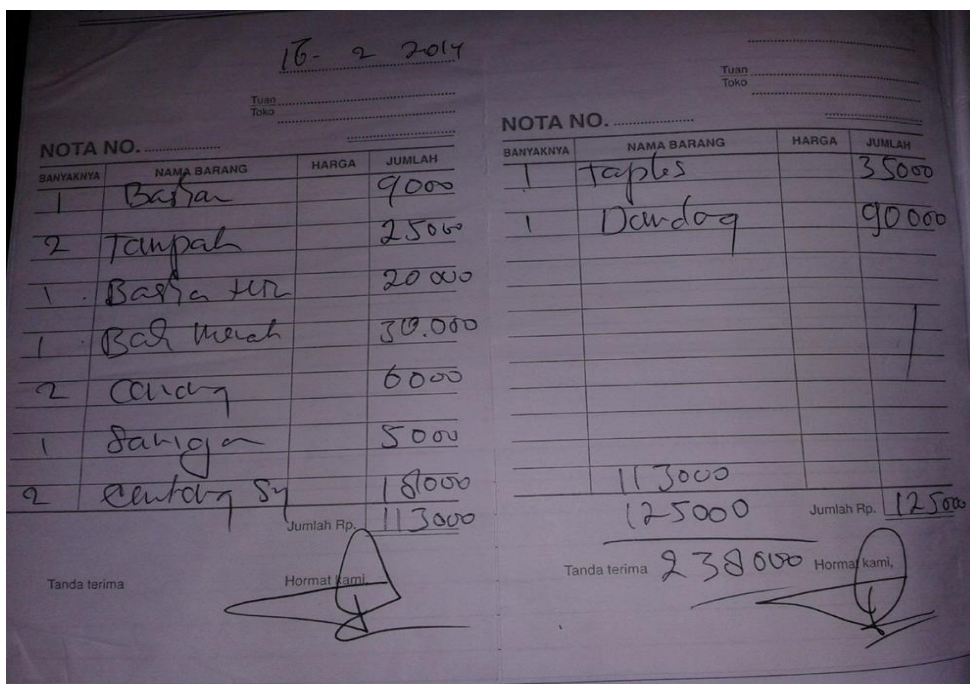 16- 2 2014
Tuan
Toko
NOTA NO.
BANYAKNYA NAMA BARANG HARGA JUMLAH
1 9000
2 Tampah 25000
1 20 000
1 Bak Merah 30.000
2 6000
1 Saringan 5000
2 Centong 18000
Jumlah Rp. 113000
Tanda terima Hormat kami,
Tuan
Toko
NOTA NO.
BANYAKNYA NAMA BARANG HARGA JUMLAH
1 Toples 35000
1 Dandag 90000
113000
125000 Jumlah Rp. 125000
Tanda terima 238000 Hormat kami,